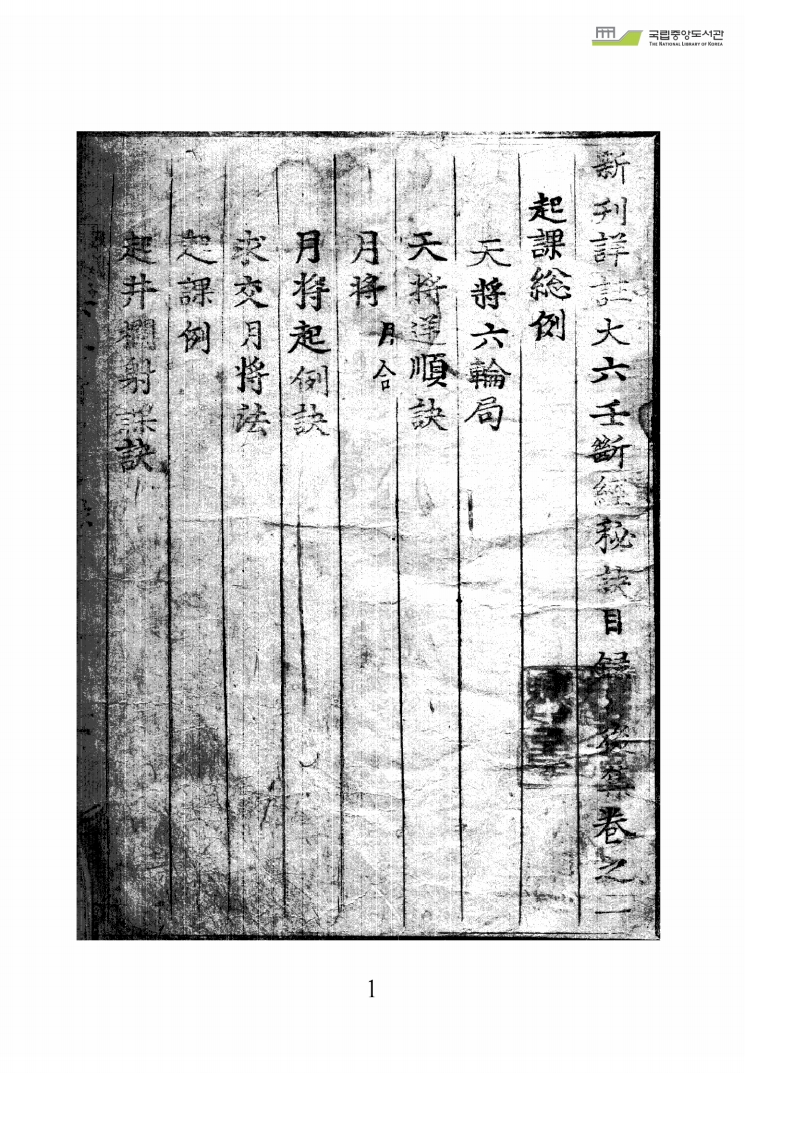 국립중앙도서관
THE NATIONAL LIBRARY OF KOREA
新刊詳註大六壬斷經秘訣目錄 卷之二
起課総例
天將六輪局
天將逆順訣
月將 月合
月將起例訣
求交月將法
起課例
起井欄射課訣
1